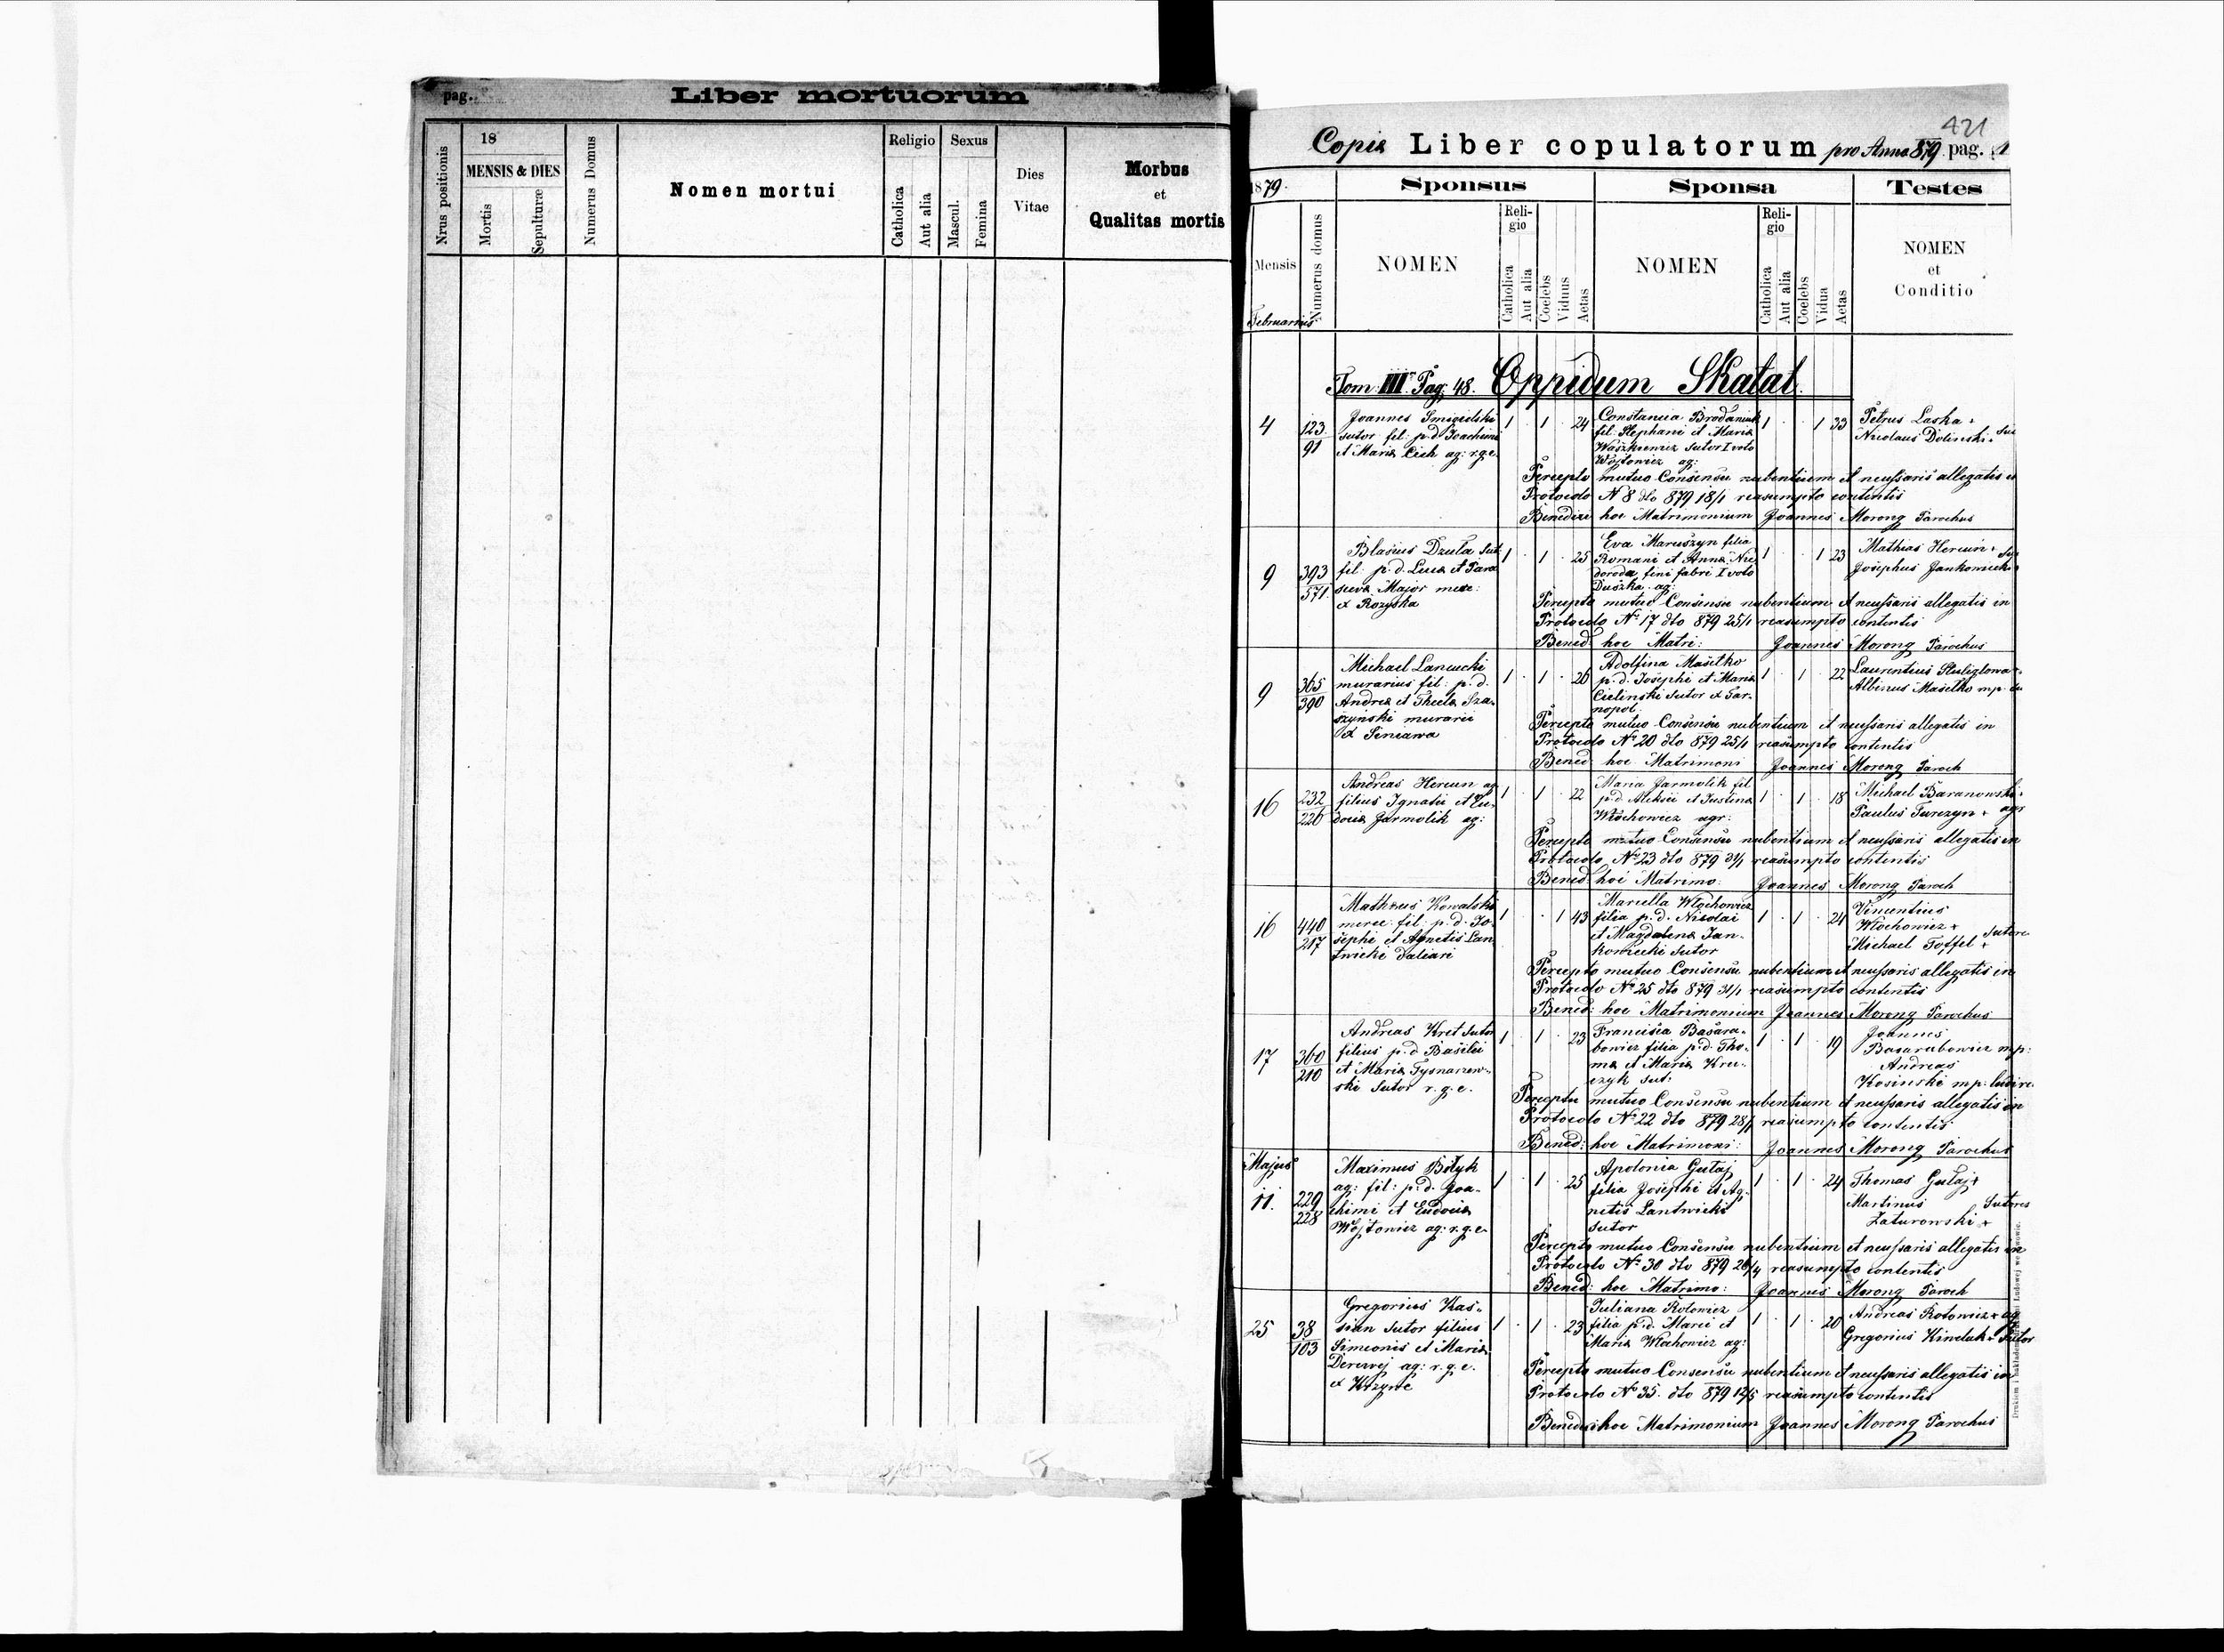 pag.
Liber mortuorum
Nrus positionis
18
MENSIS & DIES
Mortis
Sepulturæ
Numerus Domus
Nomen mortui
Religio
Catholica
Aut alia
Sexus
Mascul.
Femina
Dies
Vitae
Morbus
et
Qualitas mortis
421
Copia Liber copulatorum pro Anno 879 pag. 1
1879.
Sponsus
Sponsa
Testes
Mensis
Februarius
Numerus domus
NOMEN
Reli-
gio
Catholica
Aut alia
Coelebs
Viduus
Aetas
NOMEN
Reli-
gio
Catholica
Aut alia
Coelebs
Vidua
Aetas
NOMEN
et
Conditio
Tom: III Pag: 48. Oppidum Skalat
4
123
91
Joannes Smigielski
sutor fil: p.d. Joachimi
et Maria Cich ag: r.g.c.
1 1 24
Constancia Brodaniuk
fil: Stephani et Maria
Waszkiewicz sutor I voto
Wojtowicz ag:
1 1 33
Petrus Laska +
Nicolaus Dolinski +
Percepto mutuo Consensu nubentium et necessaris allegatis
Protocolo N 8 dto 879 18/1 reasumpto contentis
Benedixi hoc Matrimonium Joannes Morong Parochus
9
393
571
Blasius Dzula Sut:
fil: p.d. Luca et Para
sceva Major merc:
ex Rozyska
1 1 25
Eva Maruszyn filia
Romani et Anna Nie
doroda fini fabri I voto
Duszka ag:
1 1 23
Mathias Hercun +
Josephus Jankowicki
Percepto mutuo Consensu nubentium et necessaris allegatis in
Protocolo No 17 dto 879 25/1 reasumpto contentis
Bened: hoc Matri: Joannes Morong Parochus
9
365
390
Michael Lancucki
murarius fil: p.d.
Andrea et Thecla Sza-
szynski murarii
ex Sieniawa
1 1 26
Adolfina Maselko
p.d. Josephi et Maria
Cielinski sutor ex Tar-
nopol
1 1 22
Laurentius
Albinus Maselko mp.
Percepto mutuo Consensu nubentium et necessaris allegatis in
Protocolo No 20 dto 879 25/1 reasumpto contentis
Bened: hoc Matrimoni Joannes Morong Paroch
16
232
226
Andreas Hercun ag
filius Ignatii et Eu-
docia Jarmolik ag:
1 1 22
Maria Jarmolik fil
p.d. Aleksii et Justina
Włochowicz agr:
1 1 18
Michael Baranowski +
Paulus Turczyn + agr
Percepto mutuo Consensu nubentium et necessaris allegatis in
Protocolo No 23 dto 879 31/1 reasumpto contentis
Bened: hoc Matrimo: Joannes Morong Paroch
16
440
217
Matheus Kowalski
merc: fil: p.d. Jo-
sephi et Agnetis Lan
twicki
1 1 43
Marcella Włochowicz
filia p.d. Nicolai
et Magdalena Jan-
kowicki sutor
1 1 24
Vincentius
Włochowicz +
Michael Toffel + Sutores
Percepto mutuo Consensu nubentium et necessaris allegatis in
Protocolo No 25 dto 879 31/1 reasumpto contentis
Bened: hoc Matrimonium Joannes Morong Parochus
17
360
210
Andreas Kret Sutor
filius p.d. Basilii
et Maria Tysnarzew-
ski Sutor r.g.c.
1 1 23
Francisca Basara-
bowicz filia p.d. Tho-
ma et Maria Kru-
czyk sut:
1 1 19
Joannes
Basarabowicz mp:
Andreas
Kosinski mp:
Percepto mutuo Consensu nubentium et necessaris allegatis in
Protocolo No 22 dto 879 28/1 reasumpto contentis
Bened: hoc Matrimoni: Joannes Morong Parochus
Majus
11.
229
228
Maximus Bilyk
ag: fil: p.d. Joa-
chimi et Eudocia
Wojtowicz ag: r.g.c.
1 1 25
Apolonia Gulaj
filia Josephi et Ag-
netis Lantwicki
Sutor
1 1 24
Thomas Gulaj +
Martinus Sutores
Zaturowski +
Percepto mutuo Consensu nubentium et necessaris allegatis in
Protocolo No 30 dto 879 26/4 reasumpto contentis
Bened: hoc Matrimo: Joannes Morong Paroch
25
38
103
Gregorius Kas-
sian sutor filius
Simeonis et Maria
Derewej ag: r.g.c.
1 1 23
Juliana Rotowicz
filia p.d. Marci et
Maria Włochowicz ag:
1 1 20
Andreas Rotowicz + ag
Gregorius Kineluk + Sutor
Percepto mutuo Consensu nubentium et necessaris allegatis in
Protocolo No 35. dto 879 12/5 reasumpto contentis
Benedixi hoc Matrimonium Joannes Morong Parochus